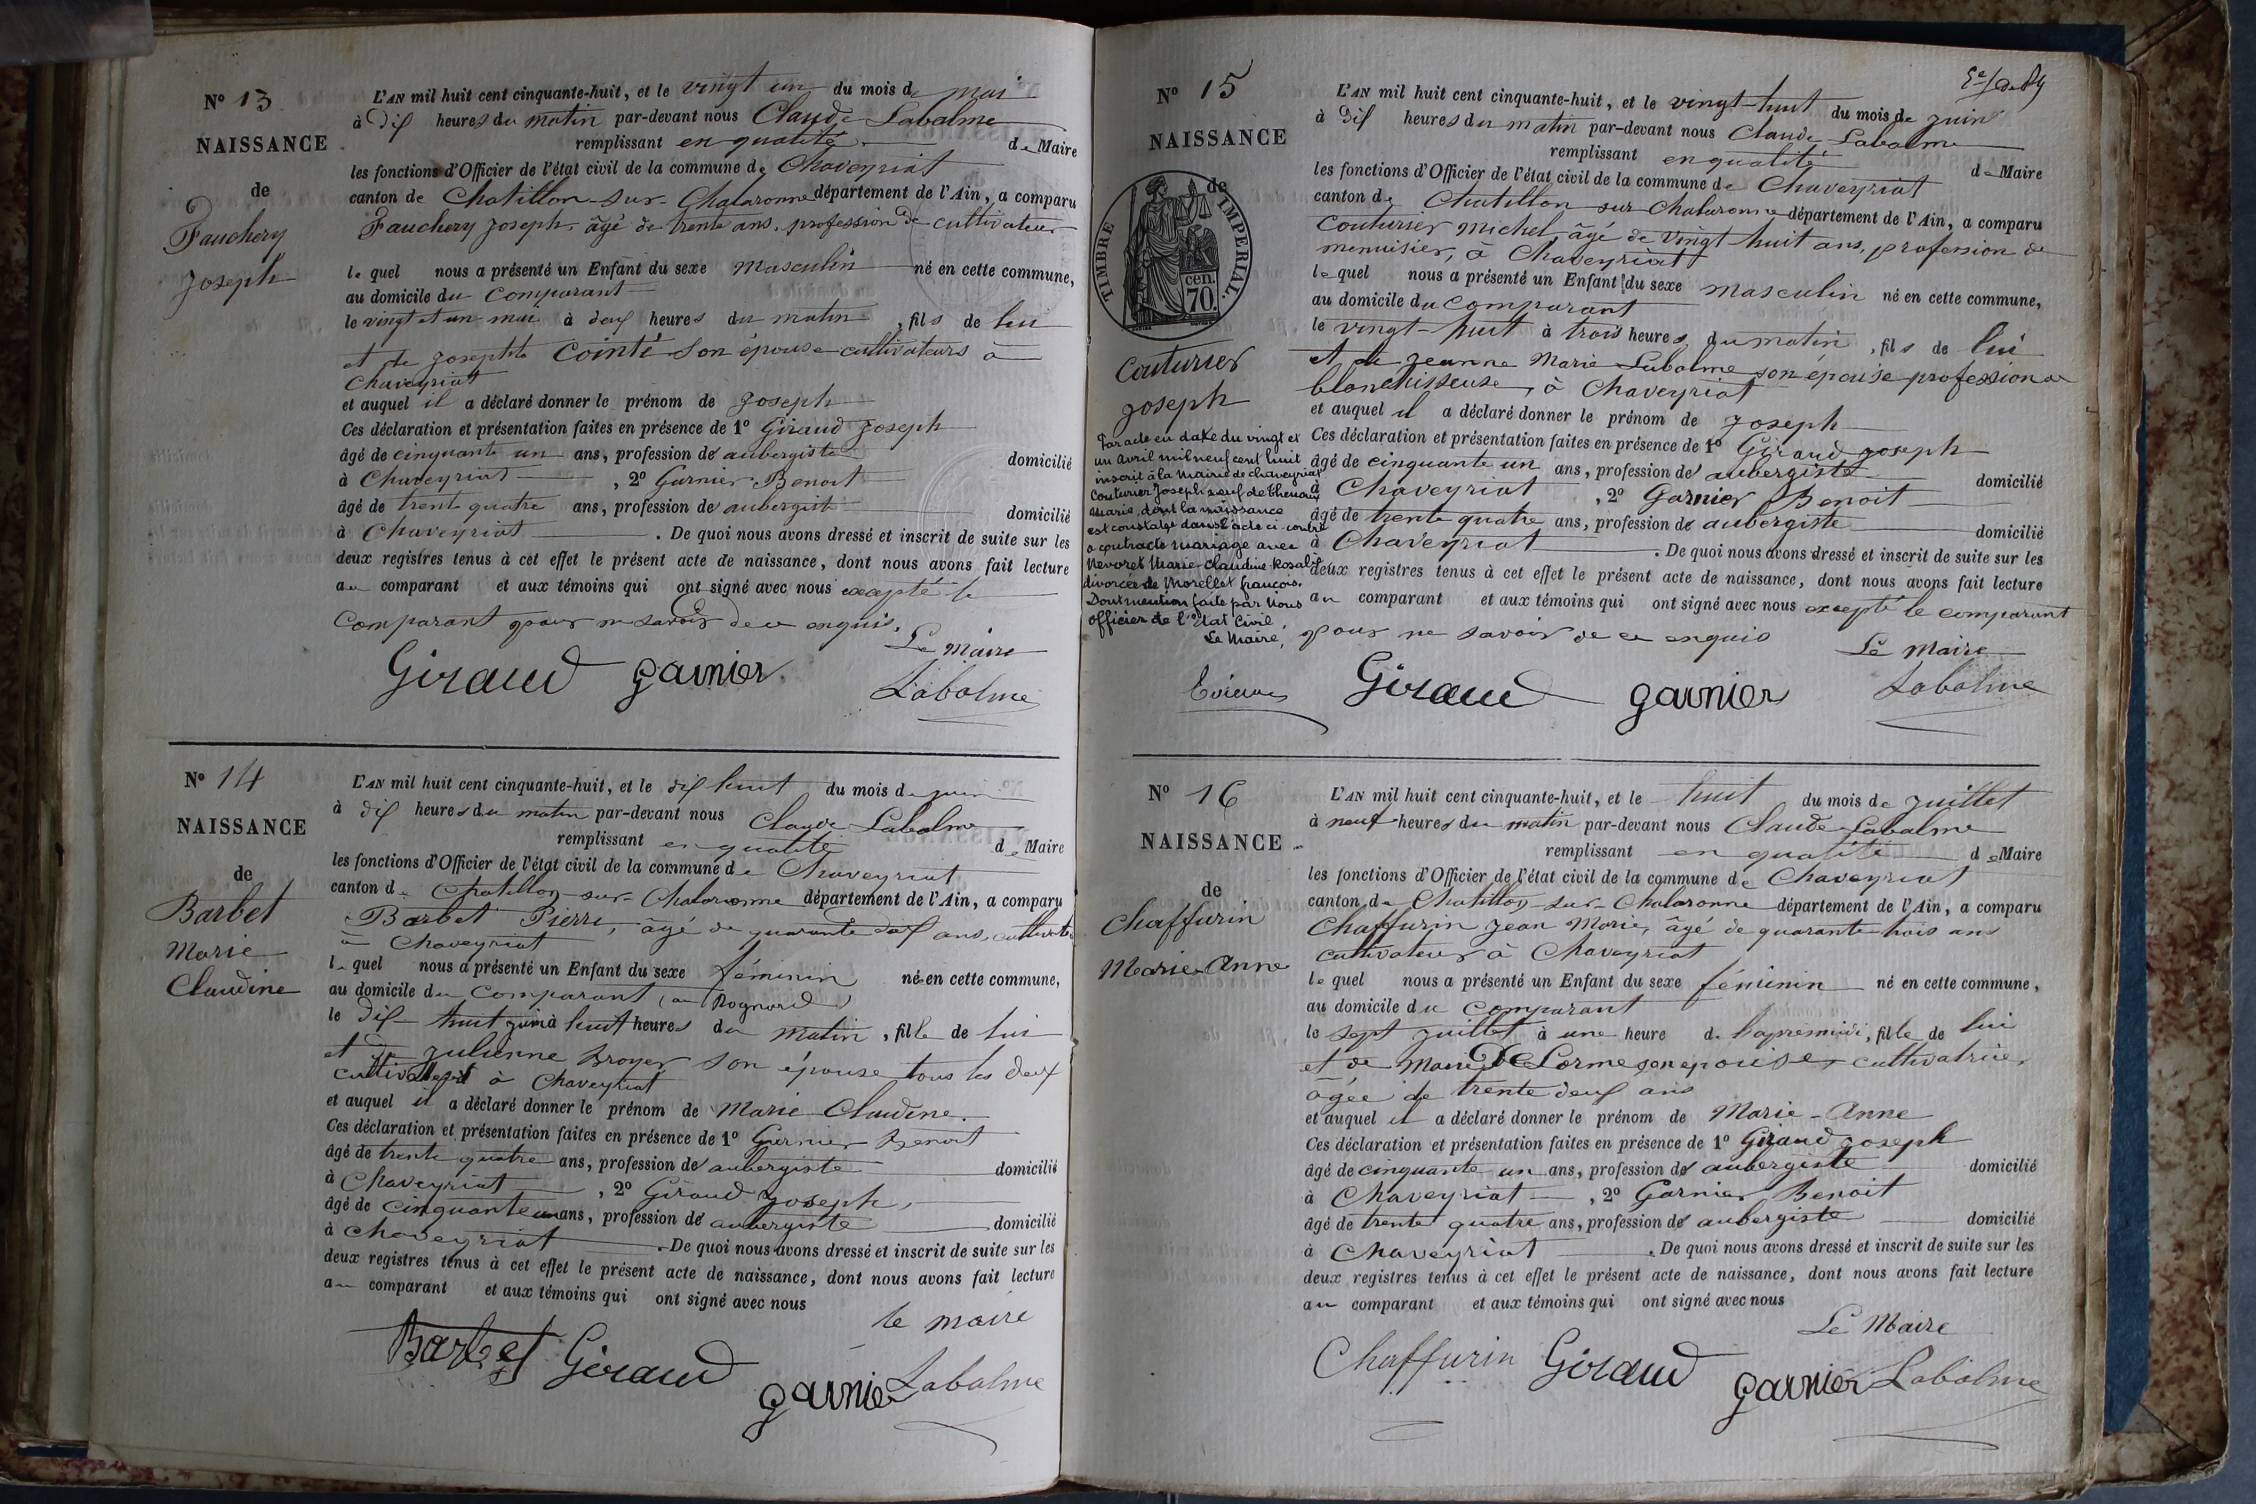 N° 13
NAISSANCE
de
Fauchery
Joseph
L'AN mil huit cent cinquante-huit, et le vingt un du mois de mai
à dix heures du matin par-devant nous Claude Labalme
remplissant en qualité de Maire
les fonctions d'Officier de l'état civil de la commune de Chaveyriat
canton de Chatillon-sur-Chalaronne département de l'Ain, a comparu
Fauchery Joseph, âgé de trente ans, profession de cultivateur
le quel nous a présenté un Enfant du sexe masculin né en cette commune,
au domicile du comparant
le vingt et un mai à deux heures du matin, fils de lui
et de Josephte Cointé son épouse cultivateurs à
Chaveyriat
et auquel il a déclaré donner le prénom de Joseph
Ces déclaration et présentation faites en présence de 1° Giraud Joseph
âgé de cinquante un ans, profession de aubergiste domicilié
à Chaveyriat, 2° Garnier Benoit
âgé de trente quatre ans, profession de aubergiste domicilié
à Chaveyriat. De quoi nous avons dressé et inscrit de suite sur les
deux registres tenus à cet effet le présent acte de naissance, dont nous avons fait lecture
au comparant et aux témoins qui ont signé avec nous excepté le
comparant pour ne savoir de ce enquis.
Le Maire
Giraud garnier Labalme
N° 14
NAISSANCE
de
Barbet
Marie
Claudine
L'AN mil huit cent cinquante-huit, et le dix huit du mois de juin
à dix heures du matin par-devant nous Claude Labalme
remplissant en qualité de Maire
les fonctions d'Officier de l'état civil de la commune de Chaveyriat
canton de Chatillon-sur-Chalaronne département de l'Ain, a comparu
Barbet Pierre, âgé de quarante deux ans, cultivateur
à Chaveyriat
le quel nous a présenté un Enfant du sexe féminin né en cette commune,
au domicile du comparant (au Rognard)
le dix-huit juin à huit heures du matin, fille de lui
et de Julienne Broyer son épouse tous les deux
à Chaveyriat
et auquel il a déclaré donner le prénom de Marie Claudine.
Ces déclaration et présentation faites en présence de 1° Garnier Benoit
âgé de trente quatre ans, profession de aubergiste domicilié
à Chaveyriat, 2° Giraud Joseph,
âgé de cinquante un ans, profession de aubergiste domicilié
à Chaveyriat. De quoi nous avons dressé et inscrit de suite sur les
deux registres tenus à cet effet le présent acte de naissance, dont nous avons fait lecture
au comparant et aux témoins qui ont signé avec nous
le maire
Barbet Giraud
garnier Labalme
N° 15
NAISSANCE
de
TIMBRE IMPERIAL.
70 cen.
Couturier
Joseph
Par acte en date du vingt et
un Avril mil neuf cent huit
inscrit à la Mairie de Chaveyriat
Couturier Joseph veuf de
Marie, dont la naissance
est constatée dans l'acte ci-contre
a contracté mariage avec
Nevoret Marie-Claudine-Rosalie
divorcée de Morellet françois.
Dont mention faite par Nous
Officier de l'Etat Civil,
Le Maire,
L'AN mil huit cent cinquante-huit, et le vingt-huit du mois de juin
à dix heures du matin par-devant nous Claude Labalme
remplissant en qualité de Maire
les fonctions d'Officier de l'état civil de la commune de Chaveyriat
canton de Chatillon sur Chalaronne département de l'Ain, a comparu
Couturier Michel, âgé de vingt-huit ans, profession de
menuisier, à Chaveyriat
le quel nous a présenté un Enfant du sexe masculin né en cette commune,
au domicile du comparant
le vingt-huit à trois heures du matin, fils de lui
et de Jeanne Marie Labalme son épouse profession de
blanchisseuse, à Chaveyriat
et auquel il a déclaré donner le prénom de Joseph
Ces déclaration et présentation faites en présence de 1° Giraud Joseph
âgé de cinquante un ans, profession de aubergiste domicilié
à Chaveyriat, 2° Garnier Benoit
âgé de trente quatre ans, profession de aubergiste domicilié
à Chaveyriat. De quoi nous avons dressé et inscrit de suite sur les
deux registres tenus à cet effet le présent acte de naissance, dont nous avons fait lecture
au comparant et aux témoins qui ont signé avec nous excepté le comparant
pour ne savoir de ce enquis
Le Maire
Giraud garnier Labalme
N° 16
NAISSANCE
de
Chaffurin
Marie-Anne
L'AN mil huit cent cinquante-huit, et le huit du mois de Juillet
à neuf heures du matin par-devant nous Claude Labalme
remplissant en qualité de Maire
les fonctions d'Officier de l'état civil de la commune de Chaveyriat
canton de Chatillon-sur-Chalaronne département de l'Ain, a comparu
Chaffurin Jean Marie, âgé de quarante trois ans
cultivateur à Chaveyriat
le quel nous a présenté un Enfant du sexe féminin né en cette commune,
au domicile du comparant
le sept juillet à une heure de l'apresmidi, fille de lui
et de Marie DeLorme son epouse, cultivatrice,
âgée de trente deux ans
et auquel il a déclaré donner le prénom de Marie-Anne
Ces déclaration et présentation faites en présence de 1° Giraud Joseph
âgé de cinquante un ans, profession de aubergiste domicilié
à Chaveyriat, 2° Garnier Benoit
âgé de trente quatre ans, profession de aubergiste domicilié
à Chaveyriat. De quoi nous avons dressé et inscrit de suite sur les
deux registres tenus à cet effet le présent acte de naissance, dont nous avons fait lecture
au comparant et aux témoins qui ont signé avec nous
Le Maire
Chaffurin Giraud garnier Labalme